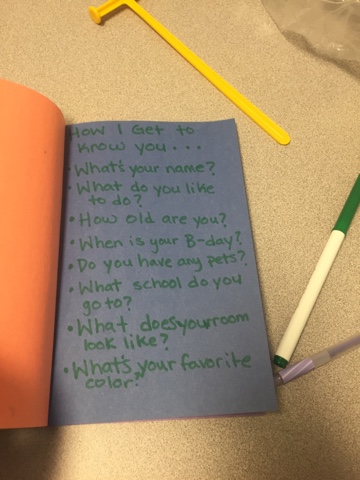 How I Get to
know you...
• What's your name?
• What do you like
to do?
• How old are you?
• When is your B-day?
• Do you have any pets?
• What school do you
go to?
• What does your room
look like?
• What's your favorite
color?